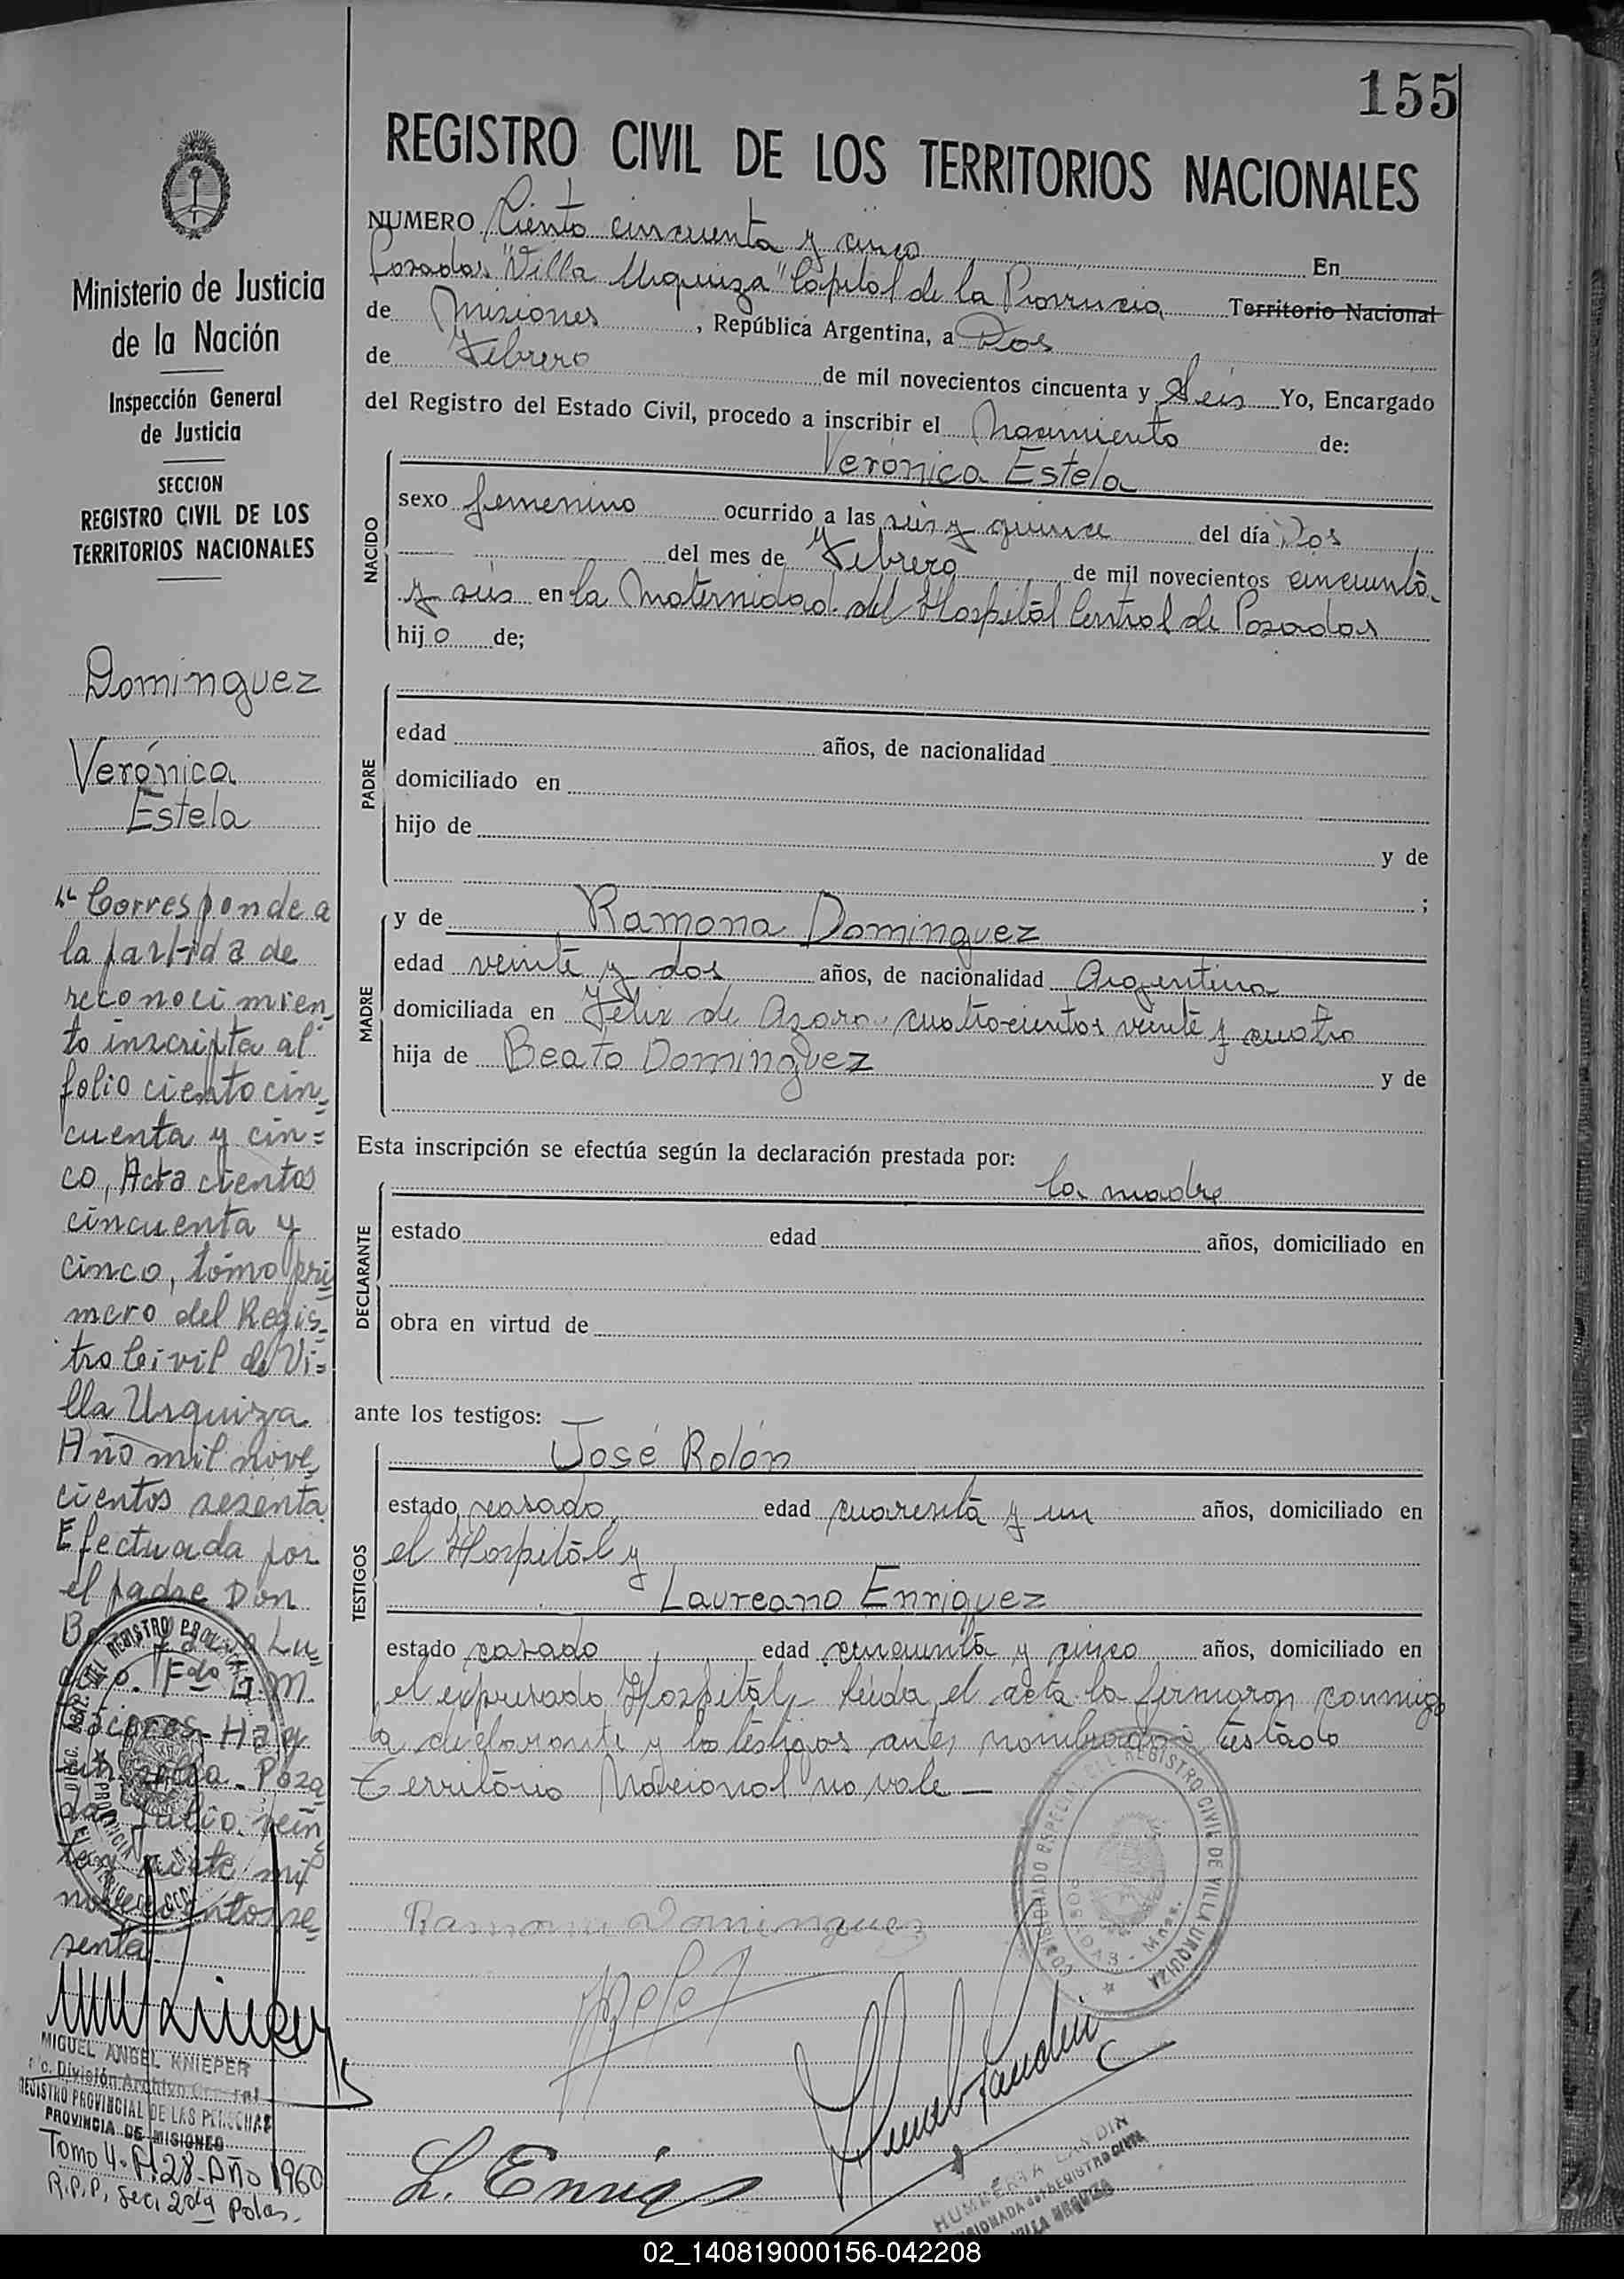 155
REGISTRO CIVIL DE LOS TERRITORIOS NACIONALES
NUMERO Ciento cincuenta y cinco En
Posadas "Villa Urquiza" Capital de la Provincia Territorio Nacional
de Misiones, República Argentina, a Dos
de Febrero de mil novecientos cincuenta y Seis Yo, Encargado
del Registro del Estado Civil, procedo a inscribir el Nacimiento de:
NACIDO
Verónica Estela
sexo femenino ocurrido a las seis y quince del día Dos
del mes de Febrero de mil novecientos cincuenta
y seis en la Maternidad del Hospital Central de Posadas
hijo de;
PADRE
edad años, de nacionalidad
domiciliado en
hijo de y de
;
MADRE
y de Ramona Dominguez
edad veinte y dos años, de nacionalidad Argentina
domiciliada en Felix de Azara cuatrocientos veinte y cuatro
hija de Beato Dominguez y de
Esta inscripción se efectúa según la declaración prestada por:
DECLARANTE
la madre
estado edad años, domiciliado en
obra en virtud de
ante los testigos:
TESTIGOS
José Rolón
estado casado edad cuarenta y un años, domiciliado en
el Hospital y
Laureano Enriquez
estado casado edad cincuenta y cinco años, domiciliado en
el expresado Hospital, leida el acta la firmaron conmigo
la declarante y los testigos antes nombrados testado
Territorio Nacional no vale —
Ramona Dominguez
L. Enriq
COMISIONADO ESPECIAL DEL REGISTRO CIVIL DE VILLA URQUIZA
POSADAS - Mnes.
HUMBERTA LANDIN
COMISIONADA del REGISTRO CIVIL
VILLA URQUIZA
Ministerio de Justicia
de la Nación
Inspección General
de Justicia
SECCION
REGISTRO CIVIL DE LOS
TERRITORIOS NACIONALES
Dominguez
Verónica
Estela
"Corresponde a
la partida de
reconocimien
to inscripta al
folio ciento cin=
cuenta y cin=
co, Acta cientos
cincuenta y
cinco, tómo pri
mero del Regis=
tro Civil de Vi=
lla Urquiza
Año mil nove
cientos sesenta
Efectuada por
el padre Don
Lu
Fdo G. M.
Hay
un sello. Posa
das Julio vein
te y siete mil
novecientos se
senta
MIGUEL ANGEL KNIEPER
a/c. División Archivo General
REGISTRO PROVINCIAL DE LAS PERSONAS
PROVINCIA DE MISIONES
Tomo 4. Aº 28. Año 1960
R.P.P. Sec. 2da Pdas.
02_140819000156-042208